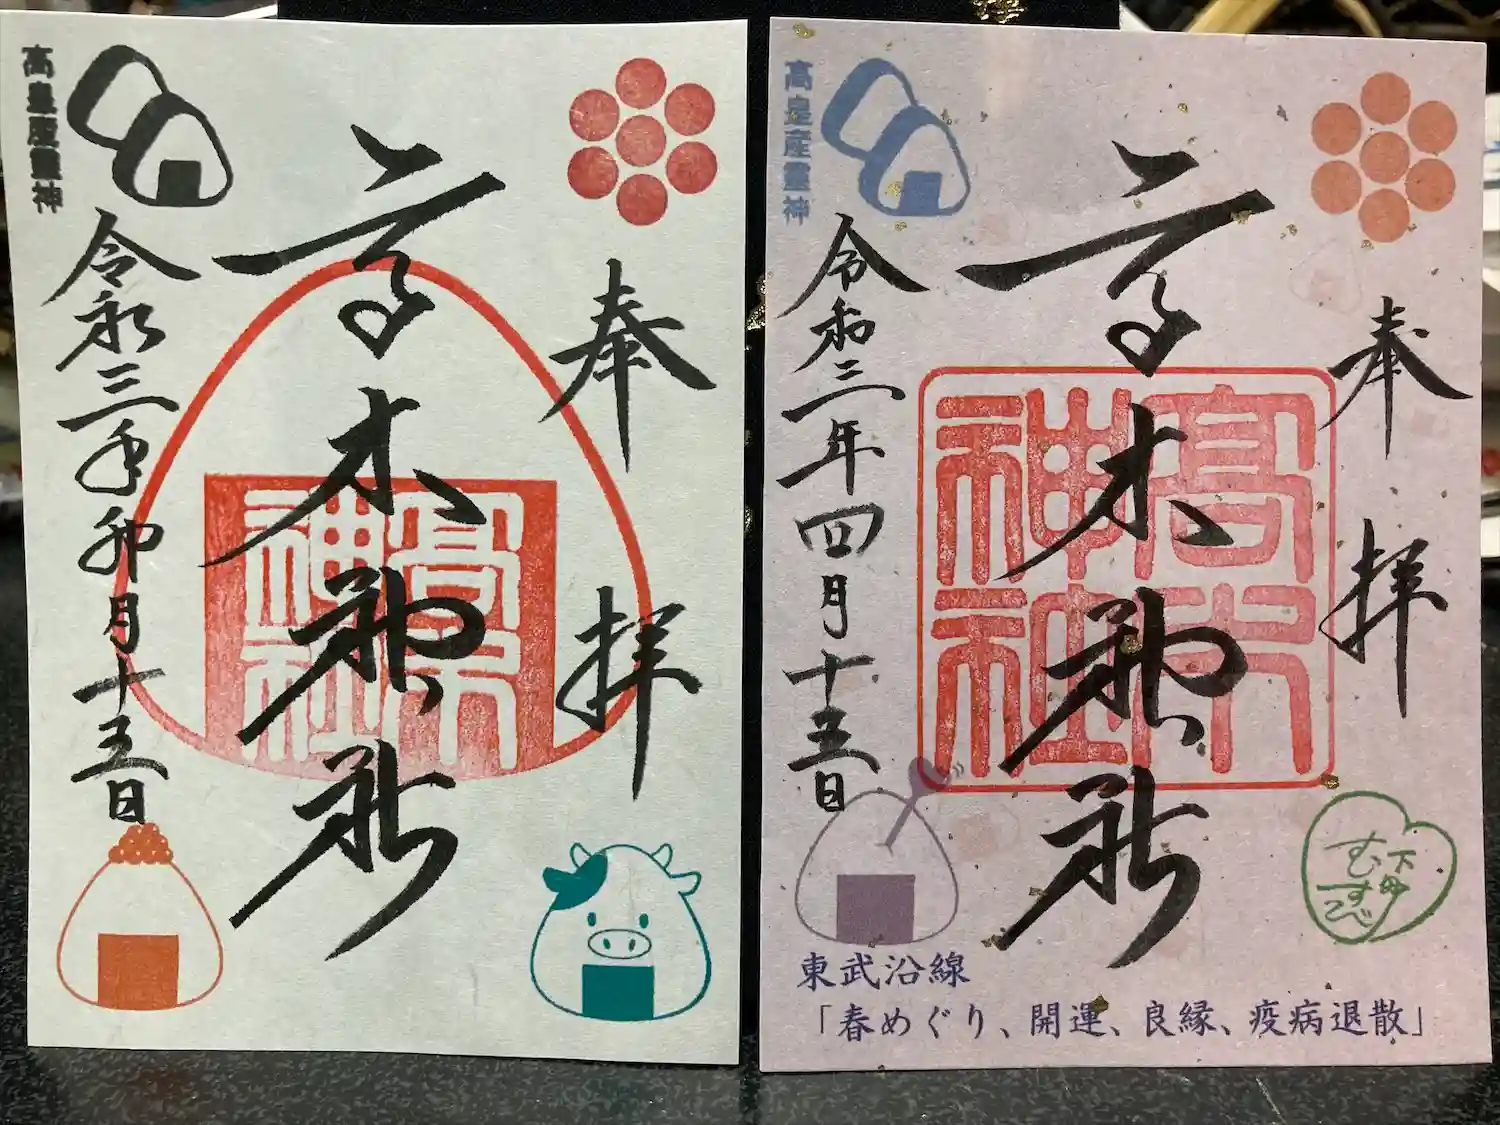 高皇産霊神
奉拝
高木神社
高木神社
令和三年卯月十五日
高皇産霊神
奉拝
高木神社
高木神社
令和三年四月十五日
むすび
東武沿線
「春めぐり、開運、良縁、疫病退散」